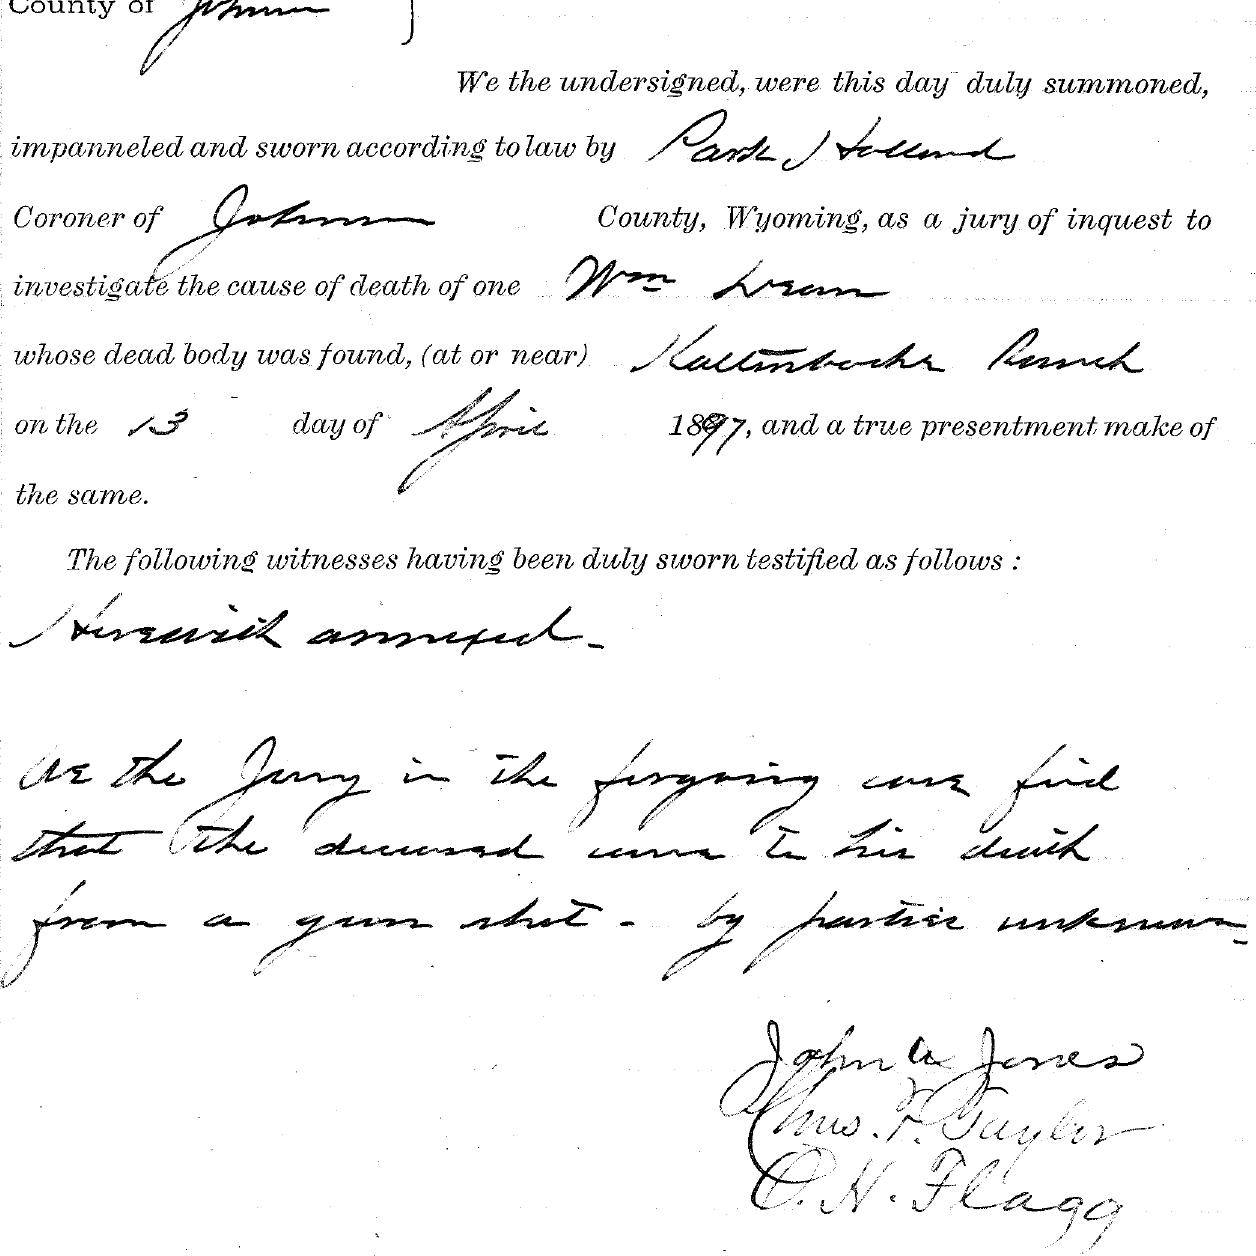 County of Johnson
We the undersigned, were this day duly summoned,
impanneled and sworn according to law by Park Holland
Coroner of Johnson County, Wyoming, as a jury of inquest to
investigate the cause of death of one Wm Dean
whose dead body was found, (at or near) Kaltenbachs Ranch
on the 13 day of April 1897, and a true presentment make of
the same.
The following witnesses having been duly sworn testified as follows :
Herewith annexed -
We the Jury in the forgoing case find
that the deceased came to his death
from a gun shot - by parties unknown -
John A Jones
Chas. F. Taylor
O. H. Flagg